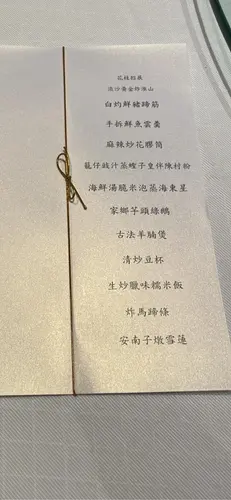 花枝招展
流沙黃金炸淮山
白灼鮮豬蹄筋
手拆鮮魚雲羹
麻辣炒花膠筒
籠仔豉汁蒸蟶子皇伴陳村粉
海鮮湯脆米泡蒸海東星
家鄉芋頭綠鵝
古法羊腩煲
清炒豆杯
生炒臘味糯米飯
炸馬蹄條
安南子燉雪蓮